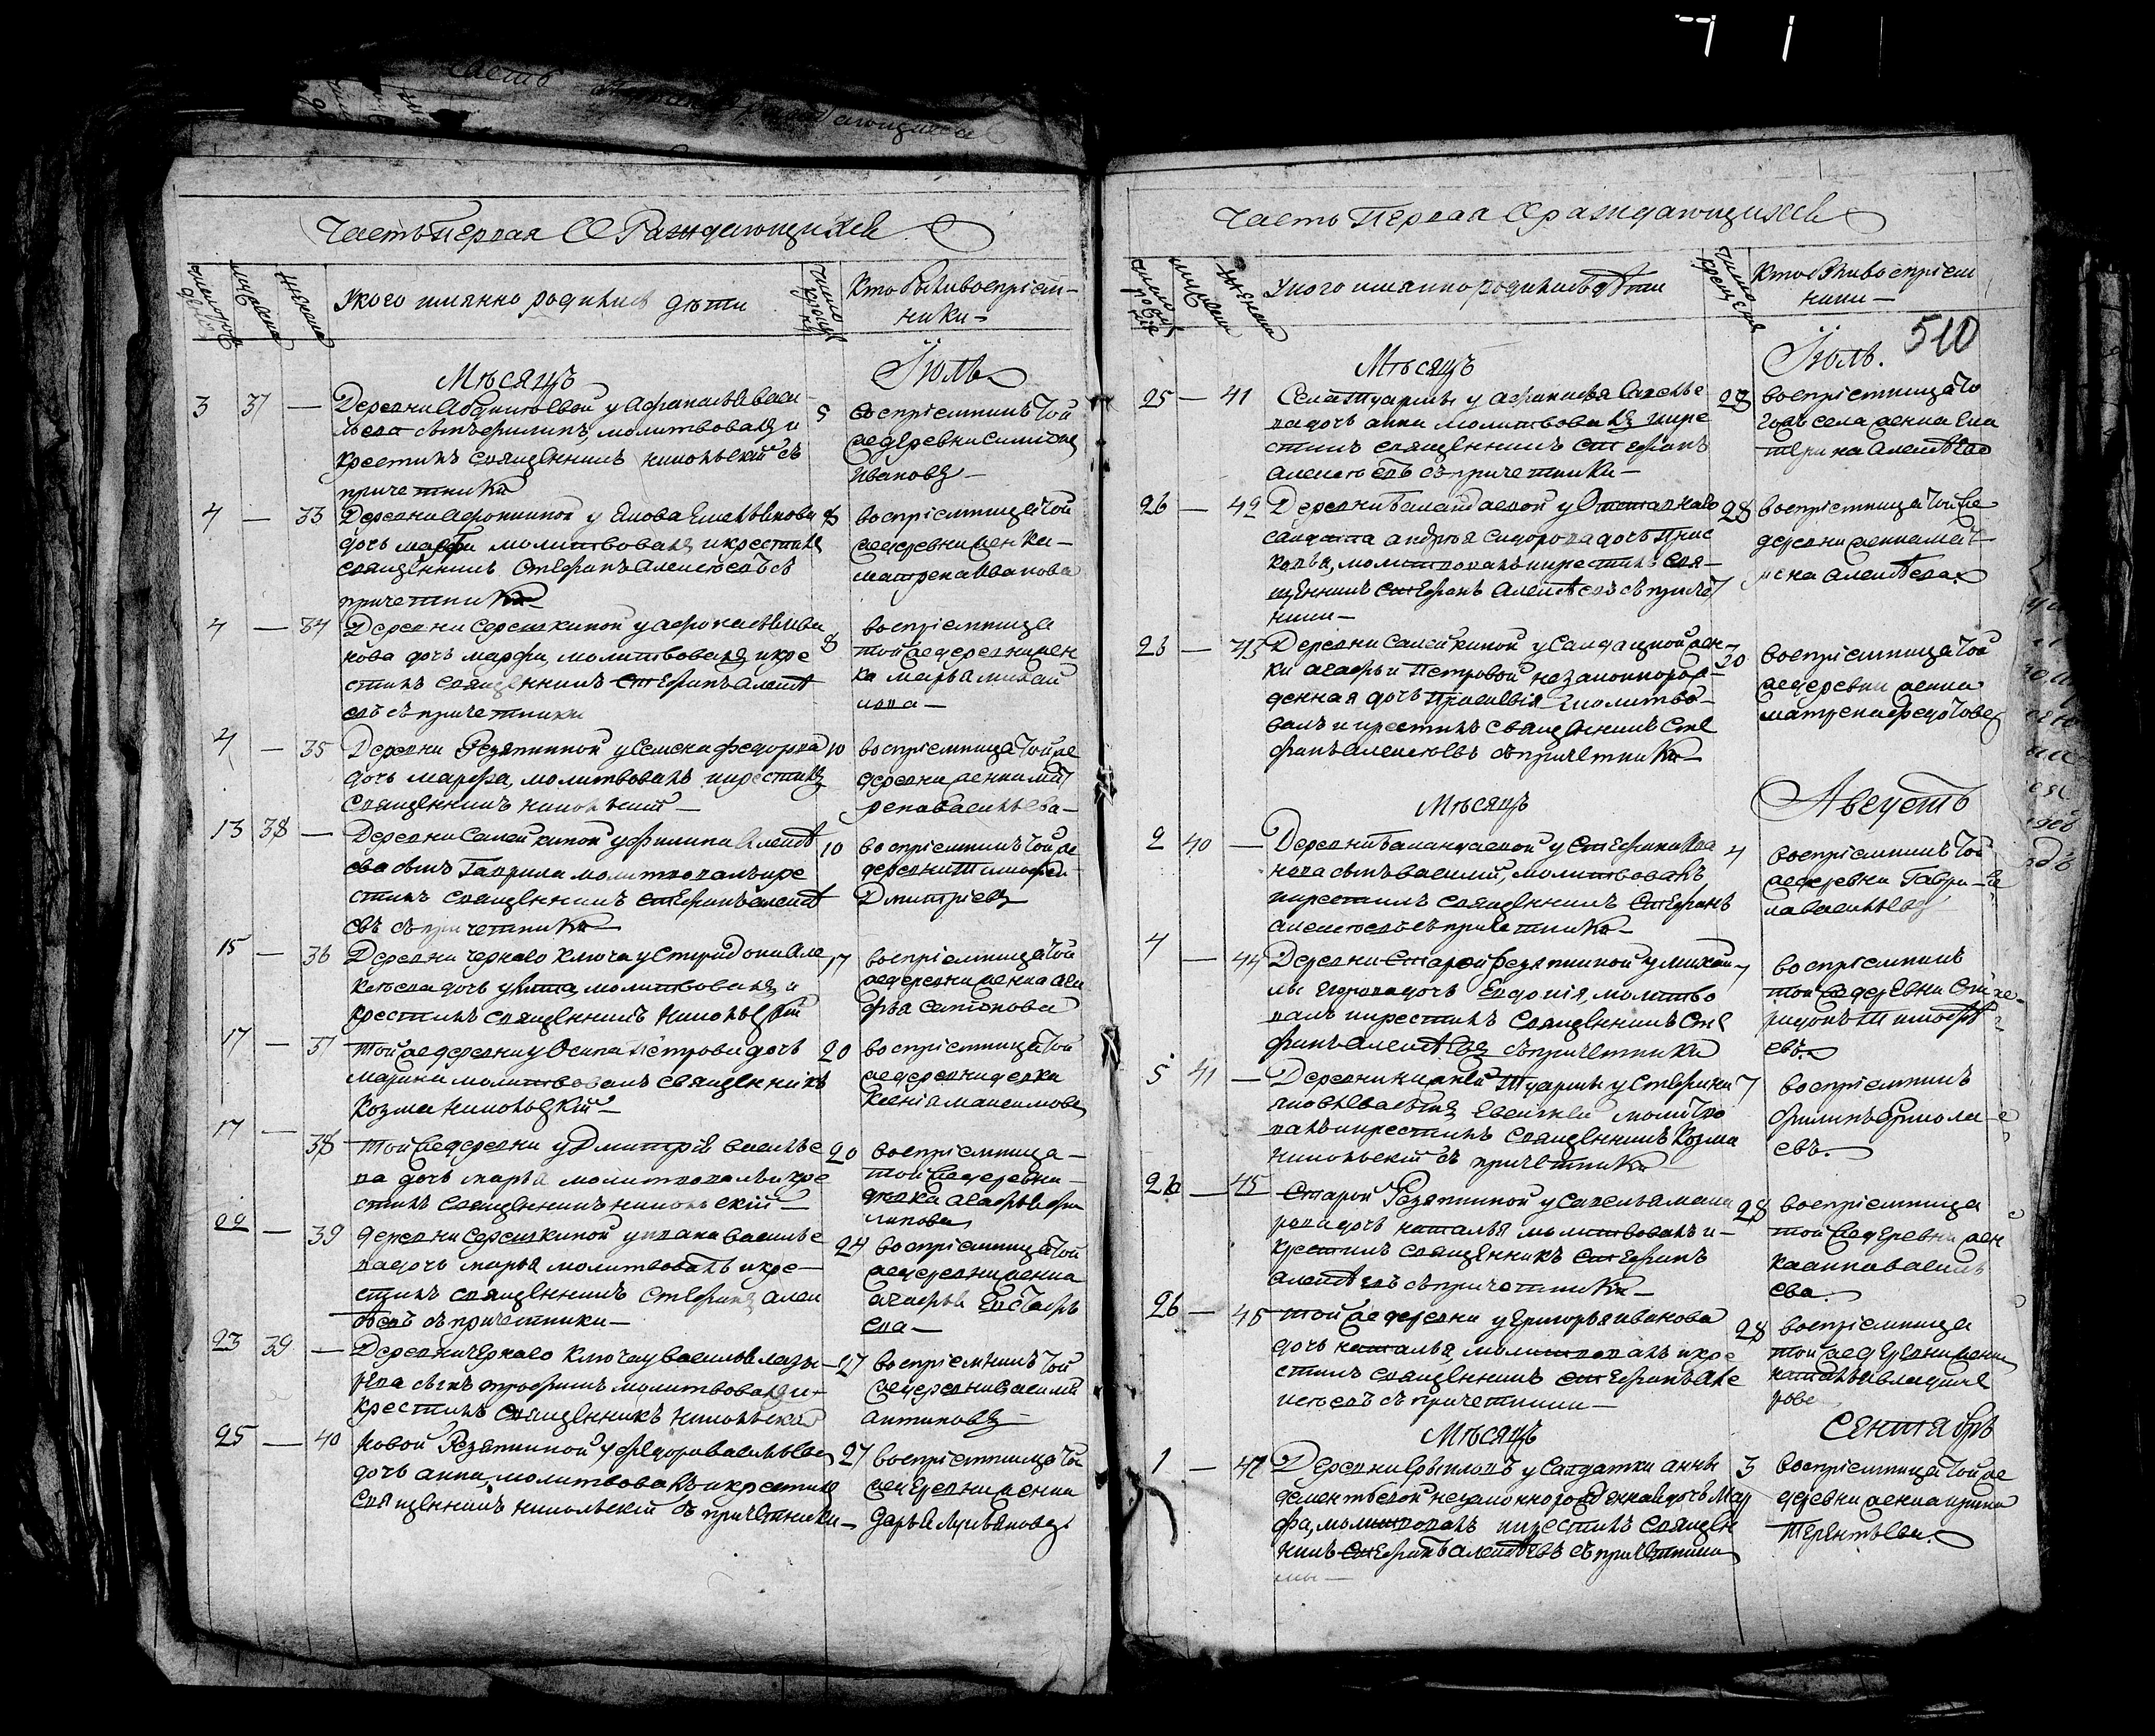 Часть Первая О Раждающихся
У кого имянно родились дѣти
Кто были воспріем-
ники
Мѣсяцъ
Июль
3 37 —
васи-
льева сынъ филипъ, молитвовалъ и
крестилъ священникъ никольскій съ
причетники
5
воспріемникъ той
же деревни симионъ
Ивановъ —
4 — 33
Деревни
дочь марфа молитвовалъ и крестилъ
священникъ Стефанъ Алексѣевъ съ
причетники
8
воспріемница той
же деревни женка
матрена Иванова
4 — 34
Деревни Серешкиной у афонасья Ива
нова дочь марфа, молитвовалъ и кре
стилъ священникъ Стефанъ алексѣ
евъ съ причетники
8
воспріемница
той же деревни жен
ка марья михай
лова —
4 — 35
Деревни Резяпкиной у Семена федорова
дочь марфа, молитвовалъ и крестилъ
священникъ никольскій —
10
воспріемница той же
деревни женка мат
рена васильева —
13 38 —
Деревни Самейкиной у филипа Алексѣ
ева сынъ Гаврила молитвовалъ и кре
стилъ священникъ Стефанъ алексѣ
евъ съ причетники —
10
воспріемникъ той же
деревни тимофей
Дмитріевъ
15 — 36
Деревни чернаго Ключа у Спиридона Але
ксѣева дочь улита, молитвовалъ и
крестилъ священникъ Никольскій
17
воспріемница той
же деревни женка ага
фья семионова
17 — 37
той же деревни у Осипа Петрова дочь
марина молитвовалъ священникъ
Козма Никольскій —
20
воспріемница той
же деревни девка
Ксенія максимова
17 — 38
той же деревни у Дмитрія василье
ва дочь марья молитвовалъ и кре
стилъ священникъ никольскій —
20
воспріемница —
той же деревни
девка агафья фи
липова
22 — 39
деревни Серешкиной у ивана василье
ва дочь марья молитвовалъ и кре-
стилъ священникъ Стефанъ алек
сѣевъ съ причетники —
24
воспріемница той
же деревни женка
агафья Евстафь
ева —
23 39 —
Деревни чернаго Ключа у василья лаза-
рева сынъ трофимъ молитвовалъ и
крестилъ священникъ никольскій
27
воспріемникъ той
же деревни василій
антиповъ —
25 — 40
новой Резяпкиной у федора васильева
дочь анна, молитвовалъ и крестилъ
священникъ никольскій съ причетники —
27
воспріемница той
же деревни женка
Дарья
Часть Первая О раждающихся
У кого имянно родились дѣти
число
крещенія
Кто были воспріем
ники —
510
Мѣсяцъ
Июль.
25 — 41
Села Туармы у афанасья Савелье
ва дочь анна молитвовалъ и кре
стилъ священникъ Стефанъ
алексѣевъ съ причетники —
28
воспріемница то
гожъ села женка Ека
терина алексѣева
26 — 42
Деревни Баландаевой у Отставнаго
салдата андрея сидорова дочь
молитвовалъ и крестилъ свя-
щенникъ Стефанъ Алексѣевъ съ причет
ники —
28
воспріемница той же
деревни женка мат
рена алексѣева
26 — 43
Деревни Самейкиной у салдацкой жен-
ки агафьи Петровой незаконнорож-
денная дочь молитво-
валъ и крестилъ священникъ Сте
фанъ алексѣевъ съ причетники —
30
воспріемница той
же деревни женка
матрена федотова
Мѣсяцъ
Августъ
2 40 —
Деревни Баландаевой у Стефана Ива
нова сынъ василій, молитвовалъ
и крестилъ священникъ Стефанъ
алексѣевъ съ причетники —
4
воспріемникъ той
же деревни Гаври-
ла васильевъ
4 — 44
Деревни Старой Резяпкиной у михай-
лы егорова дочь Евдокія, молитво
валъ и крестилъ священникъ Сте
фанъ алексѣевъ съ причетники
7
воспріемникъ
той же деревни спи
ридонъ тимофѣ
евъ
5 41 —
Деревни нижней Туармы у Стефана
яковлева сынъ Евсигней молитво
валъ и крестилъ священникъ Козма
никольскій съ причетники
7
воспріемникъ
филипъ Ермола
евъ.
26 — 45
Старой Резяпкиной у савелья мака
рова дочь наталья молитвовалъ и —
крестилъ священникъ Стефанъ
алексѣевъ съ причетники —
28
воспріемница
той же деревни жен
ка анна василь
ева.
26 — 46
той же деревни у григорья иванова
дочь наталья, молитвовалъ и кре
стилъ священникъ Стефанъ але
ксѣевъ съ причетники —
28
воспріемница
той же деревни женка
наталья владиме
рова
Мѣсяцъ
Сентябрь
1 — 47
Деревни у салдатки анны
дементьевой незаконнорожденная дочь мар
фа, молитвовалъ и крестилъ священ
никъ Стефанъ алексѣевъ съ причетника
ми —
3
воспріемница той же
деревни женка ирина
терентьева.